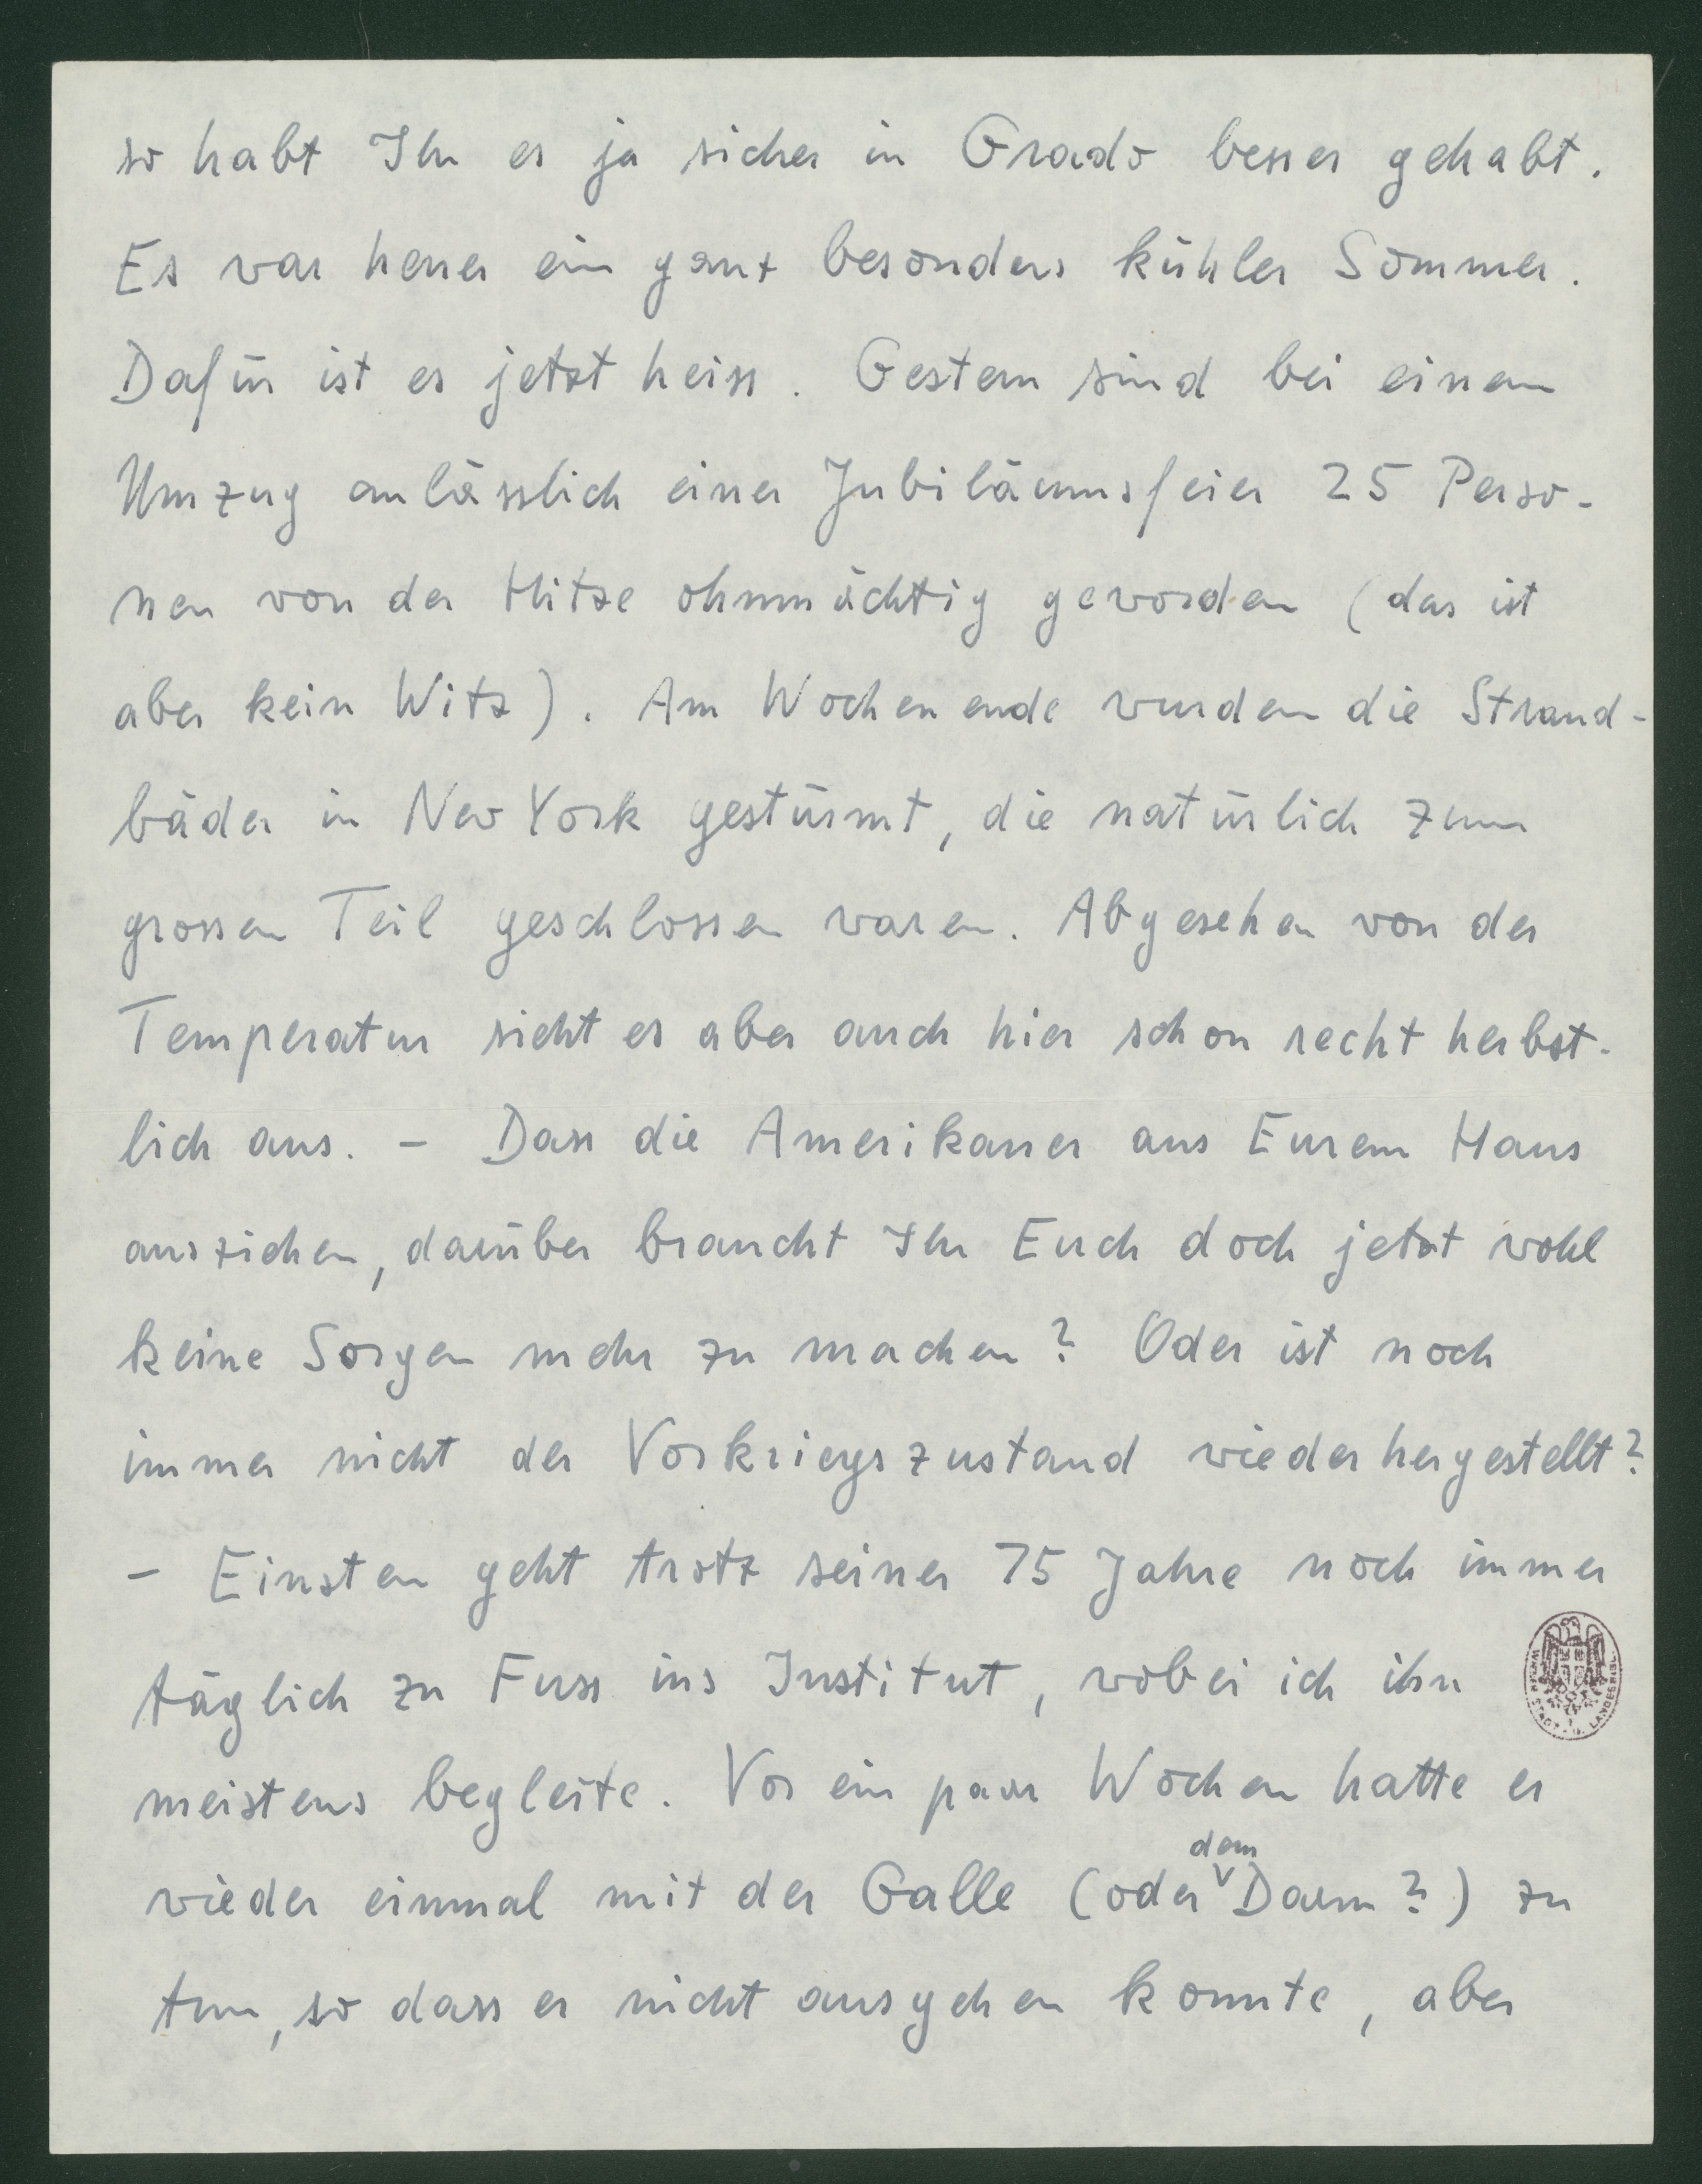 so habt Ihr es ja sicher in Grado besser gehabt.
Es war heuer ein ganz besonders kühler Sommer.
Dafür ist es jetzt heiss. Gestern sind bei einem
Umzug anlässlich einer Jubiläumsfeier 25 Perso-
nen von der Hitze ohnmächtig geworden (das ist
aber kein Witz). Am Wochenende wurden die Strand-
bäder in New York gestürmt, die natürlich zum
grossen Teil geschlossen waren. Abgesehen von der
Temperatur sieht es aber auch hier schon recht herbst-
lich aus. – Dass die Amerikaner aus Eurem Haus
ausziehen, darüber braucht Ihr Euch doch jetzt wohl
keine Sorgen mehr zu machen? Oder ist noch
immer nicht der Vorkriegszustand wiederhergestellt?
– Einsten geht trotz seiner 75 Jahre noch immer
täglich zu Fuss ins Institut, wobei ich ihn
meistens begleite. Vor ein paar Wochen hatte er
dem
wieder einmal mit der Galle (oder Darm?) zu
tun, so dass er nicht ausgehen konnte, aber